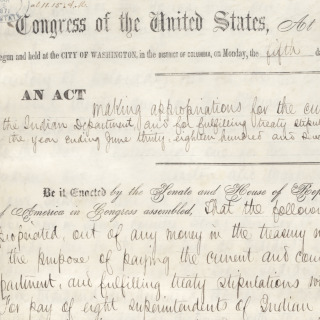 Congress of the United States, At
Begun and held at the CITY OF WASHINGTON, in the DISTRICT OF COLUMBIA, on Monday, the fifth d
AN ACT making appropriations for the cu
the Indian Department, and for fulfilling treaty stipu
the year ending June thirty, eighteen hundred and
Be it Enacted by the Senate and House of Rep
of America in Congress assembled, That the follow
propriated, out of any money in the treasury n
the purpose of paying the current and con
partment, and fulfilling treaty stipulations w
For pay of eight superintendents of Indian